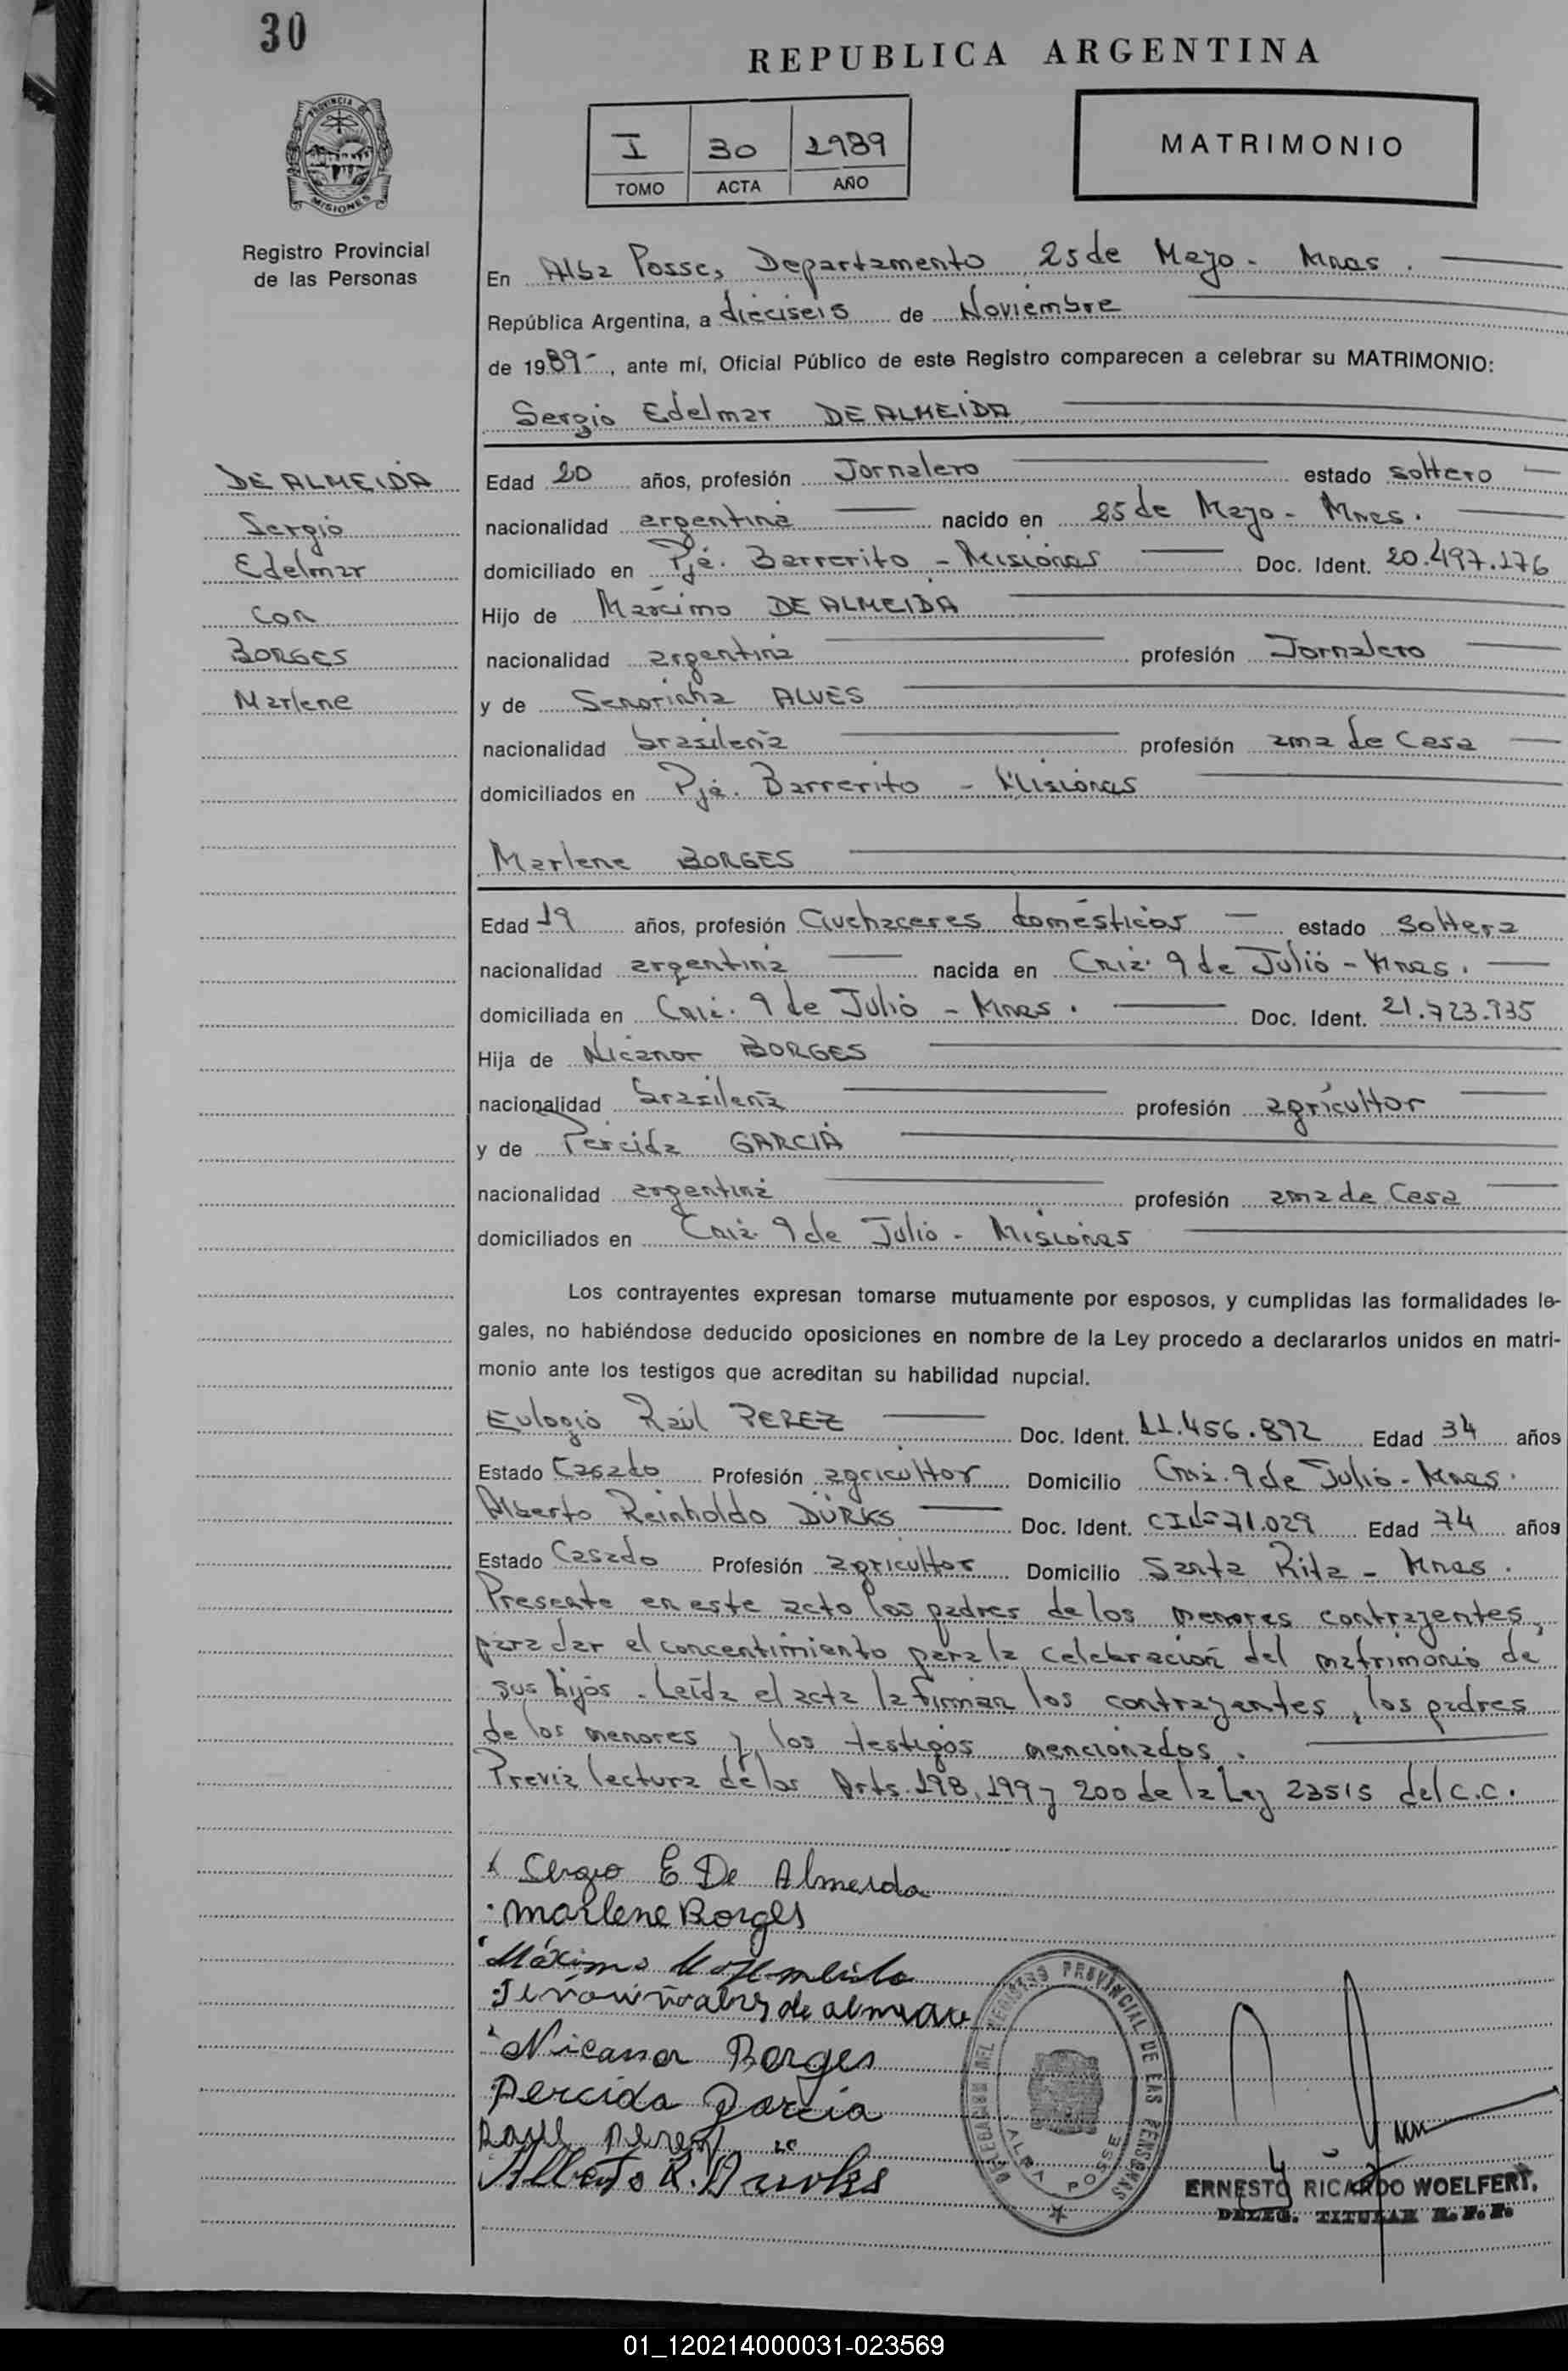 30
REPUBLICA ARGENTINA
PROVINCIA DE
MISIONES
Registro Provincial
de las Personas
I 30 1989
TOMO ACTA AÑO
MATRIMONIO
En Alba Posse, Departamento 25 de Mayo - Mnes.
República Argentina, a dieciseis de Noviembre
de 1989-, ante mí, Oficial Público de este Registro comparecen a celebrar su MATRIMONIO:
Sergio Edelmar DE ALMEIDA
DE ALMEIDA
Sergio
Edelmar
con
BORGES
Marlene
Edad 20 años, profesión Jornalero estado soltero
nacionalidad argentina nacido en 25 de Mayo - Mnes.
domiciliado en Pje. Barrerito - Misiones Doc. Ident. 20.497.176
Hijo de Marcimo DE ALMEIDA
nacionalidad argentina profesión Jornalero
y de Senorinha ALVES
nacionalidad brasileña profesión ama de Casa
domiciliados en Pje. Barrerito - Misiones
Marlene BORGES
Edad 19 años, profesión Quehaceres domésticos estado soltera
nacionalidad argentina nacida en Cnia. 9 de Julio - Mnes.
domiciliada en Cnia. 9 de Julio - Mnes. Doc. Ident. 21.723.935
Hija de Nicanor BORGES
nacionalidad brasileña profesión agricultor
y de Percida GARCIA
nacionalidad argentina profesión ama de Casa
domiciliados en Cnia. 9 de Julio - Misiones
Los contrayentes expresan tomarse mutuamente por esposos, y cumplidas las formalidades le-
gales, no habiéndose deducido oposiciones en nombre de la Ley procedo a declararlos unidos en matri-
monio ante los testigos que acreditan su habilidad nupcial.
Eulogio Raúl PEREZ Doc. Ident. 11.456.892 Edad 34 años
Estado Casado Profesión agricultor Domicilio Cnia. 9 de Julio - Mnes.
Alberto Reinholdo DÜRKS Doc. Ident. 71.029 Edad 74 años
Estado Casado Profesión agricultor Domicilio Santa Rita - Mnes.
Presente en este acto los padres de los menores contrayentes,
para dar el concentimiento para la celebración del matrimonio de
sus hijos. Leída el acta la firman los contrayentes, los padres
de los menores y los testigos mencionados.
Previa lectura de los Arts. 198, 199 y 200 de la Ley 23515 del C.C.
Sergio E De Almeida
Marlene Borges
Máximo
Nicanor Borges
Percida Garcia
Raul Perez
Alberto R. Dürks
DELEGACION DEL REGISTRO PROVINCIAL DE LAS PERSONAS
ALBA POSSE
ERNESTO RICARDO WOELFERT,
DELEG. TITULAR R. P. P.
01_120214000031-023569